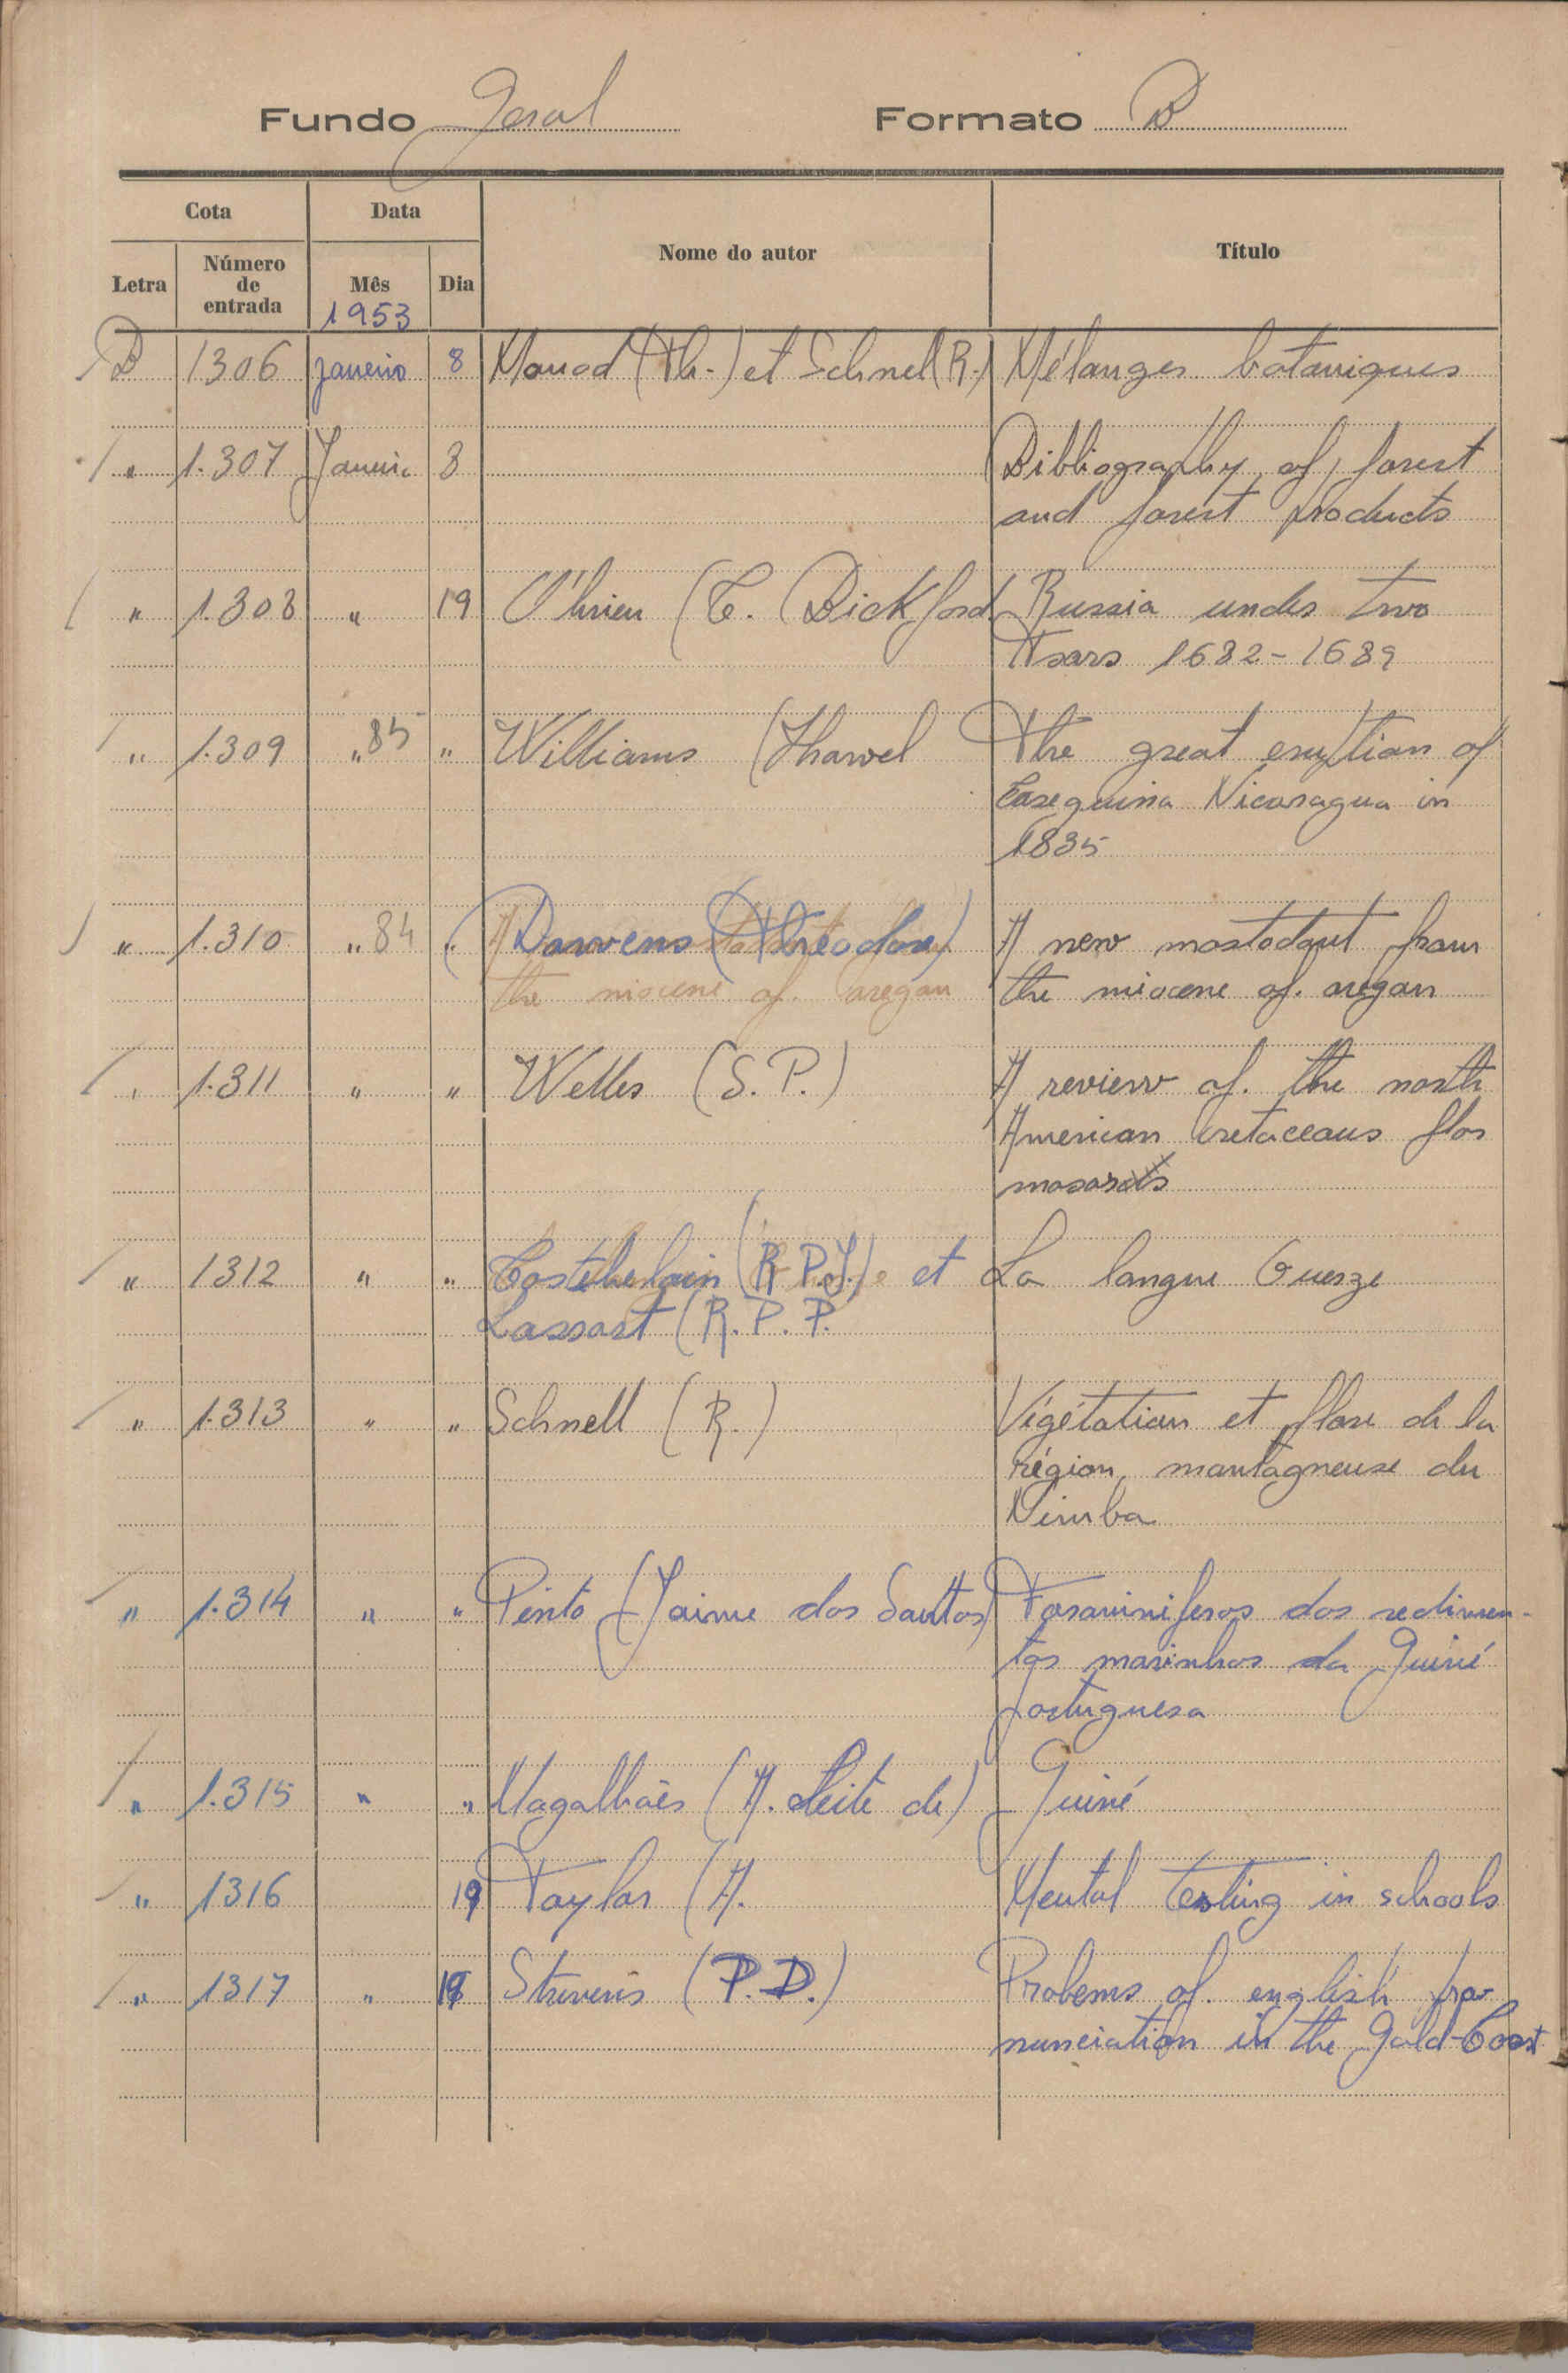 Fundo Geral Formato B
Cota Data Nome do autor Título
Letra Número de entrada Mês Dia
1953
B 1306 janeiro 8 Monod (Th.) et Schnel (R.) Mélanges botaniques
" 1.307 Janeiro 8 Bibliography of forest
and forest products
" 1.308 " 19 O'brien (C. Bickford Russia under two
Tsars 1682-1689
" 1.309 " 85 " Williams (Howel The great eruption of
Coseguina Nicaragua in
1835
" 1.310 " 84 " Downens (Theodore) A new mastodont from
the miocene of. oregon the miocene of. oregon
" 1.311 " " Welles (S.P.) A review of. the north
American cretaceous
" 1312 " " Castelhelain (R P.J.) et La langue Guerze
Lassort (R.P.P.
" 1.313 " " Schnell (R.) Végétation et flore de la
région montagneuse du
Nimba
" 1.314 " " Pinto (Jaime dos Santos) Foraminiferos dos sedimen-
tos marinhos da Guiné
portuguesa
" 1.315 " " Magalhães (A. Leite de) Guiné
" 1316 19 Taylor (A. Mental testing in schools
" 1317 " Strevens (P.D.) Probems of. english pro
nunciation in the Gold-Coast